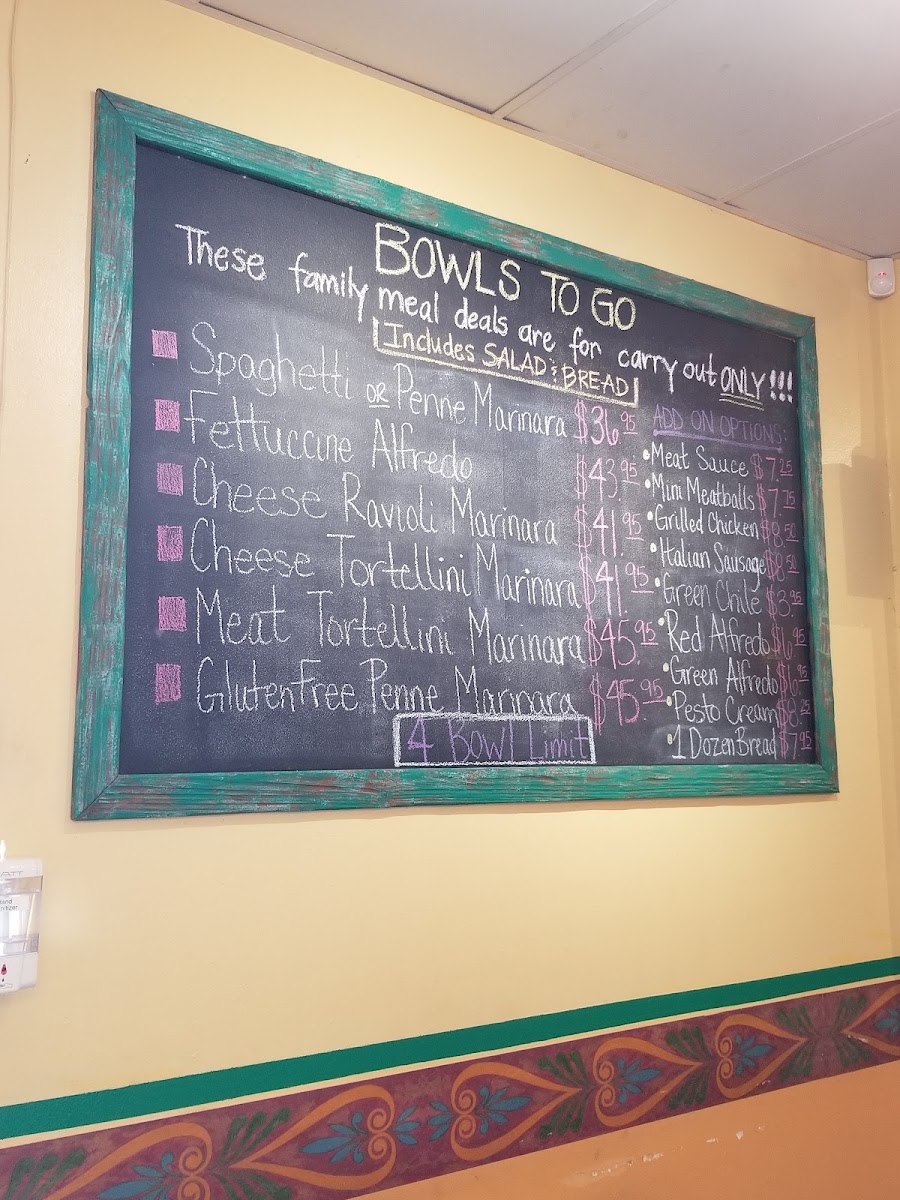 BOWLS TO GO
These family meal deals are for carry out ONLY!!!
Includes SALAD & BREAD
Spaghetti OR Penne Marinara $36.95
Fettuccine Alfredo $43.95
Cheese Ravioli Marinara $41.95
Cheese Tortellini Marinara $41.95
Meat Tortellini Marinara $45.95
Gluten Free Penne Marinara $45.95
4 Bowl Limit
ADD ON OPTIONS:
• Meat Sauce $7.25
• Mini Meatballs $7.75
• Grilled Chicken $8.50
• Italian Sausage $8.50
• Green Chile $3.95
• Red Alfredo $6.95
• Green Alfredo $6.95
• Pesto Cream $8.25
• 1 Dozen Bread $7.95